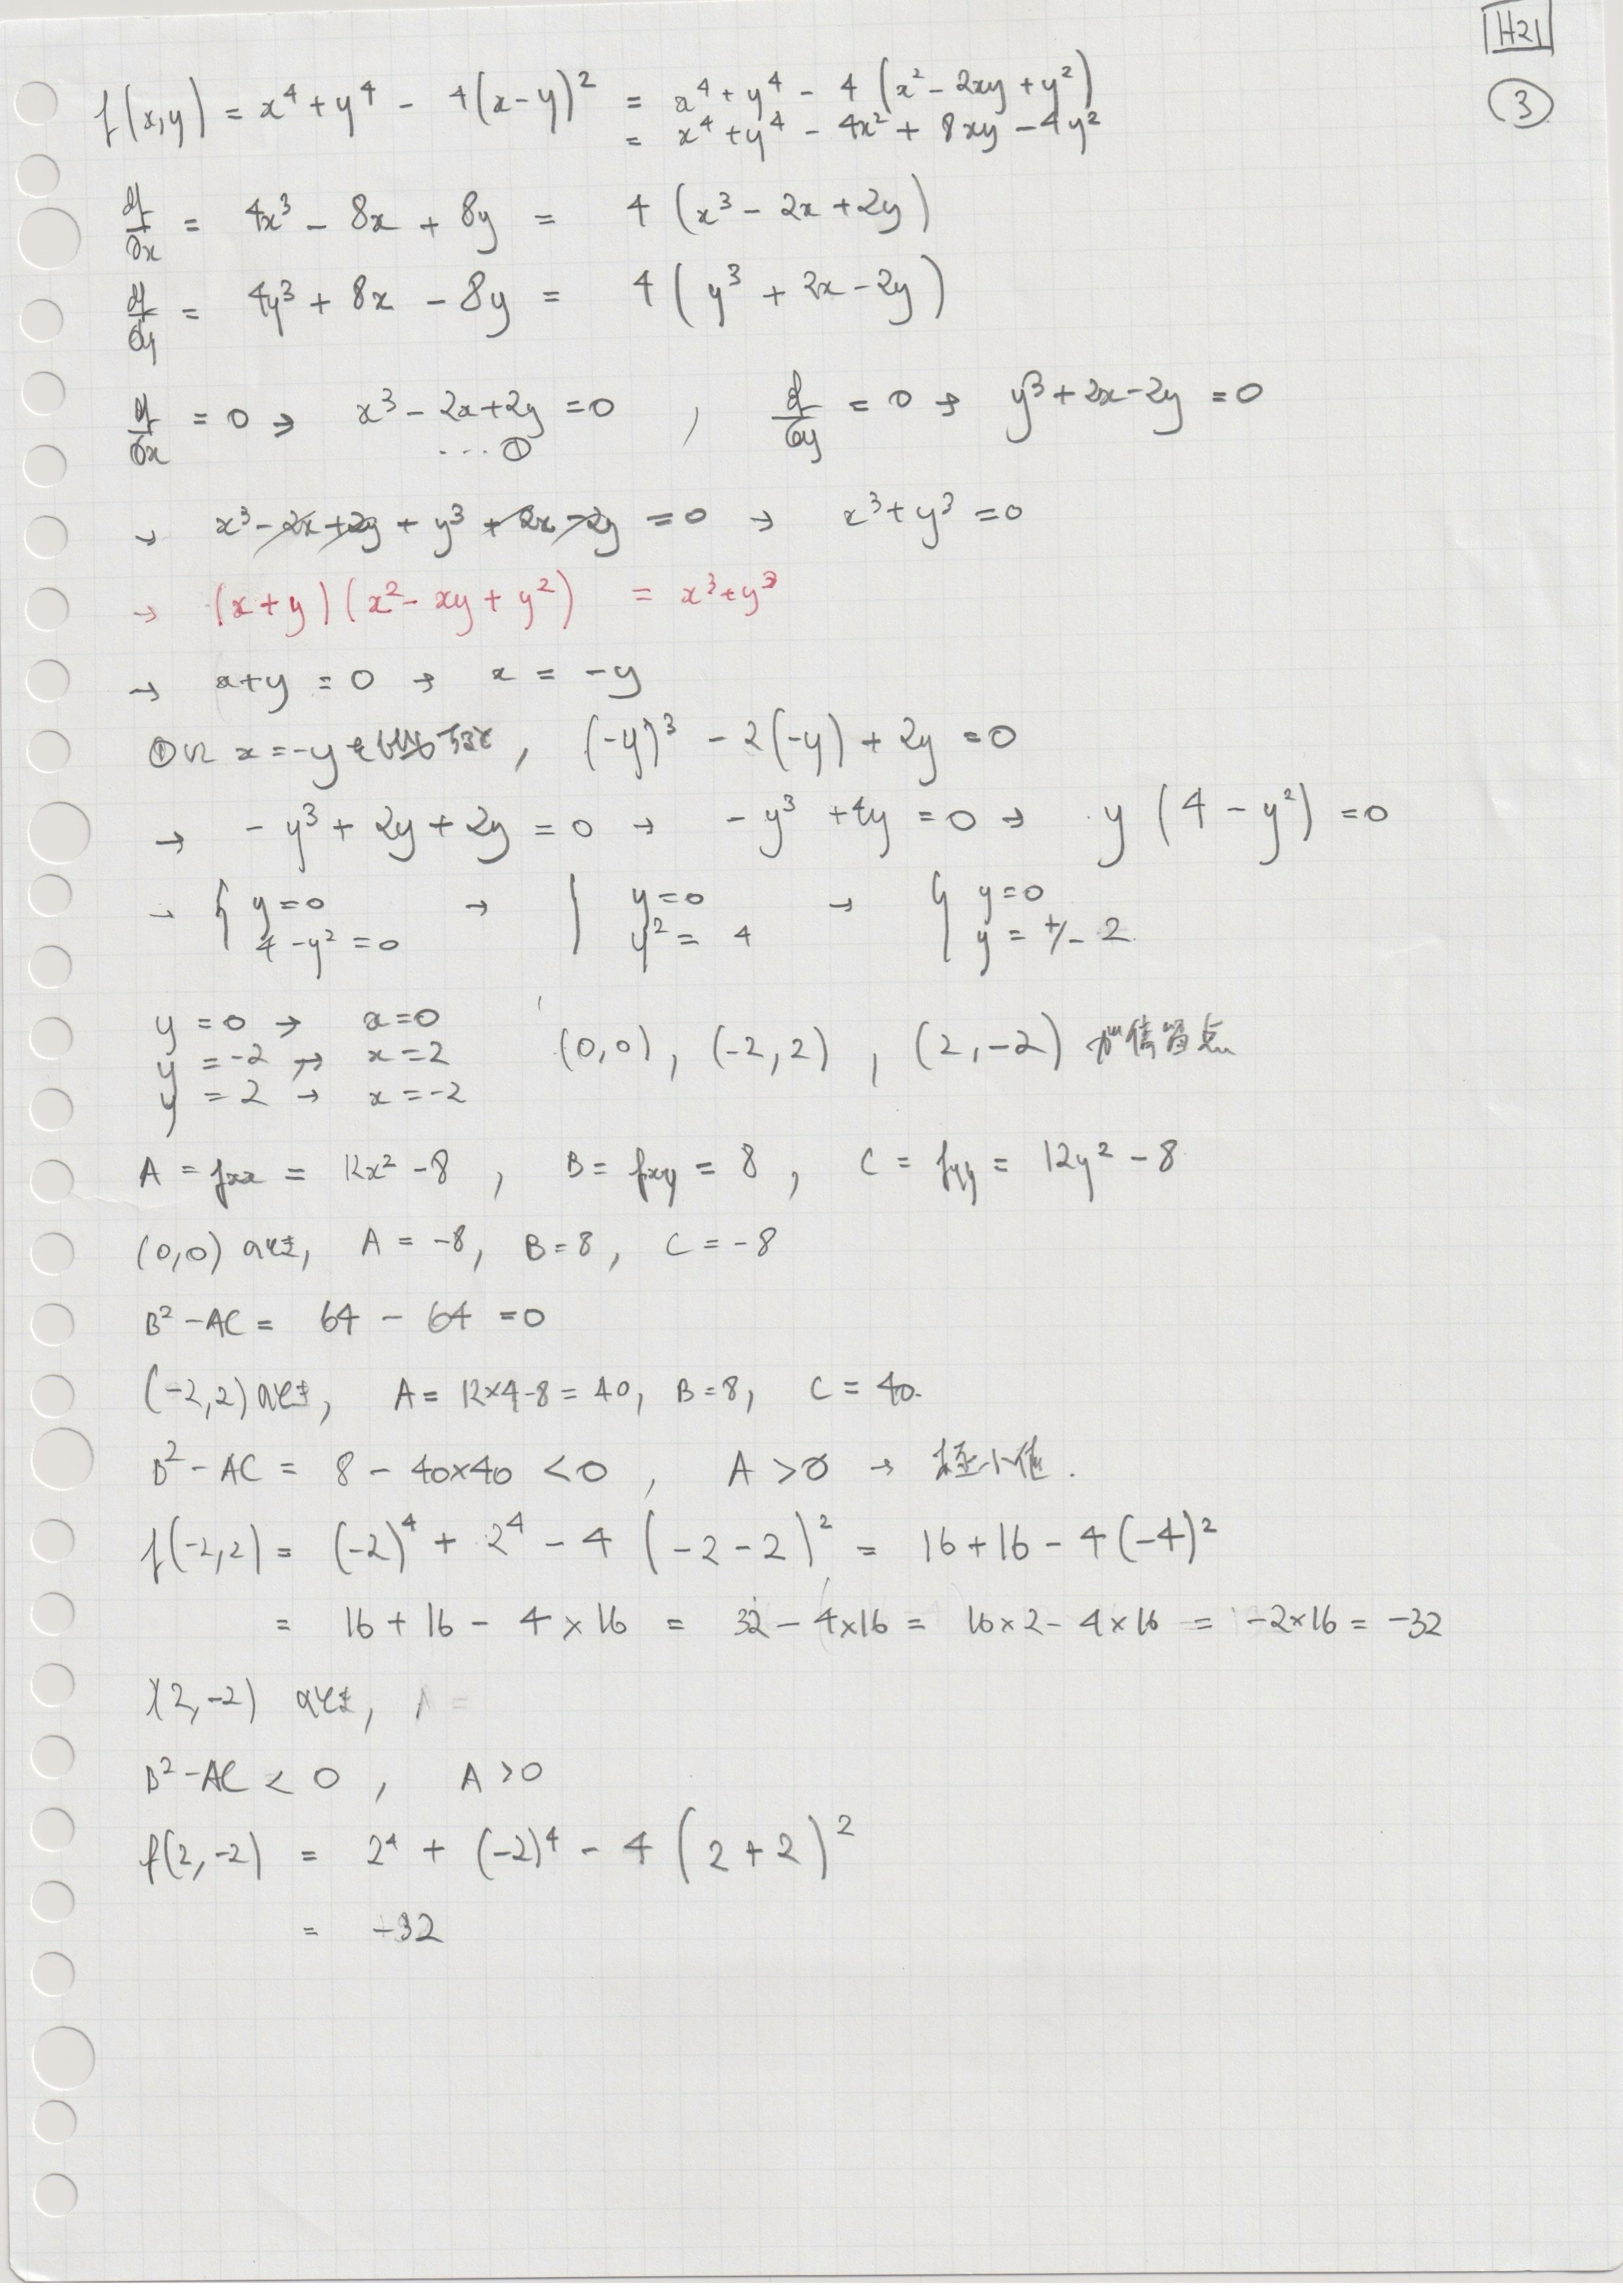 H21
③
f(x,y) = x⁴ + y⁴ - 4(x-y)² = x⁴ + y⁴ - 4(x² - 2xy + y²)
= x⁴ + y⁴ - 4x² + 8xy - 4y²
∂f/∂x = 4x³ - 8x + 8y = 4(x³ - 2x + 2y)
∂f/∂y = 4y³ + 8x - 8y = 4(y³ + 2x - 2y)
∂f/∂x = 0 → x³ - 2x + 2y = 0 , ∂f/∂y = 0 → y³ + 2x - 2y = 0
... ①
→ x³ - 2x + 2y + y³ + 2x - 2y = 0 → x³ + y³ = 0
→ (x+y)(x² - xy + y²) = x³ + y³
→ x+y = 0 → x = -y
①に x = -y を , (-y)³ - 2(-y) + 2y = 0
→ -y³ + 2y + 2y = 0 → -y³ + 4y = 0 → y(4 - y²) = 0
→ { y=0 → { y=0 → { y=0
4 - y² = 0 y² = 4 y = +/- 2
y = 0 → x=0
y = -2 → x = 2 (0,0), (-2,2), (2,-2) が停留点
y = 2 → x = -2
A = fxx = 12x² - 8 , B = fxy = 8 , C = fyy = 12y² - 8
(0,0) のとき, A = -8, B = 8, C = -8
B² - AC = 64 - 64 = 0
(-2,2) のとき, A = 12×4-8 = 40, B = 8, C = 40.
B² - AC = 8 - 40×40 < 0 , A > 0 → 極小値.
f(-2,2) = (-2)⁴ + 2⁴ - 4(-2-2)² = 16 + 16 - 4(-4)²
= 16 + 16 - 4 × 16 = 32 - 4×16 = 16×2 - 4×16 = -2×16 = -32
(2,-2) のとき, A =
B² - AC < 0 , A > 0
f(2,-2) = 2⁴ + (-2)⁴ - 4(2+2)²
= -32